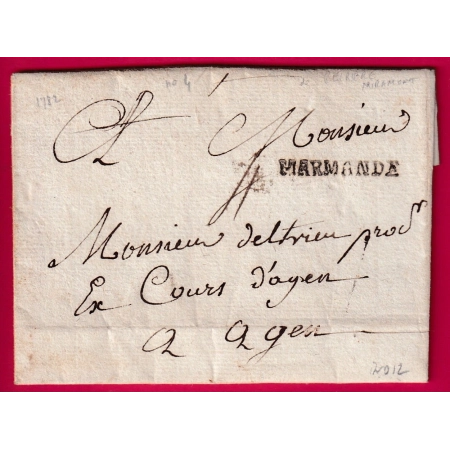 1782
no 4
MIRAMONT
A Monsieur
MARMANDE
Monsieur deltrieu prodr
Ex Cours d'agen
a agen
ND12